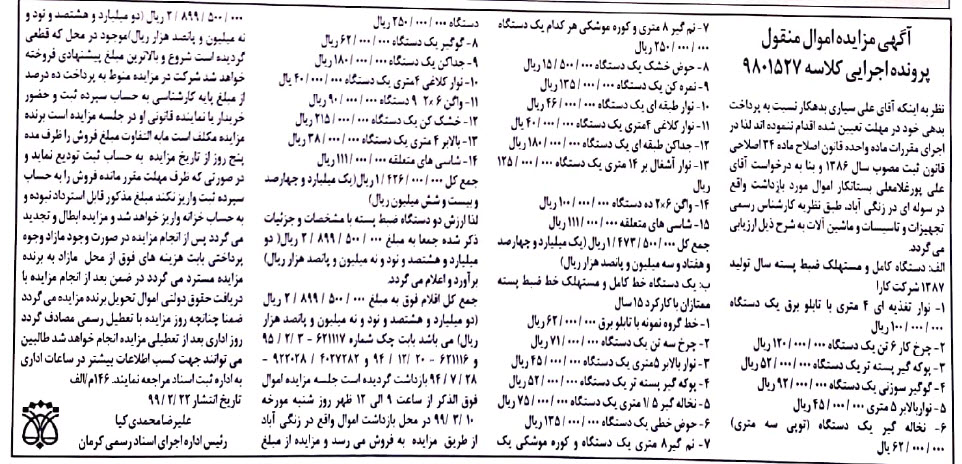 آگهی مزایده اموال منقول
پرونده اجرایی کلاسه ۹۸۰۱۵۲۷
نظر به اینکه آقای علی سیاری بدهکار نسبت به پرداخت
بدهی خود در مهلت تعیین شده اقدام ننموده اند لذا در
اجرای مقررات ماده واحده قانون اصلاح ماده ۳۴ اصلاحی
قانون ثبت مصوب سال ۱۳۸۶ و بنا به درخواست آقای
علی پورغلامعلی بستانکار اموال مورد بازداشت واقع
در سوله ای در زنگی آباد، طبق نظریه کارشناس رسمی
تجهیزات و تاسیسات و ماشین آلات به شرح ذیل ارزیابی
می گردد.
الف: دستگاه کامل و مستهلک ضبط پسته سال تولید
۱۳۸۷ شرکت کارا
۱- نوار تغذیه ای ۴ متری با تابلو برق یک دستگاه
۱۰۰/۰۰۰/۰۰۰ ریال
۲- چرخ کار ۶ تن یک دستگاه ۱۲۰/۰۰۰/۰۰۰ ریال
۳- پوکه گیر پسته تر یک دستگاه ۵۲/۰۰۰/۰۰۰ ریال
۴- گوگیر سوزنی یک دستگاه ۹۲/۰۰۰/۰۰۰ ریال
۵- نواربالابر ۵ متری ۴۵/۰۰۰/۰۰۰ ریال
۶- نخاله گیر یک دستگاه (توپی سه متری)
۶۲/۰۰۰/۰۰۰ ریال
۷- نم گیر ۸ متری و کوره موشکی هر کدام یک دستگاه
۲۵۰/۰۰۰/۰۰۰ ریال
۸- حوض خشک یک دستگاه ۱۵/۵۰۰/۰۰۰ ریال
۹- نمره کن یک دستگاه ۱۳۵/۰۰۰/۰۰۰ ریال
۱۰- نوار طبقه ای یک دستگاه ۴۶/۰۰۰/۰۰۰ ریال
۱۱- نوار کلاغی ۴متری یک دستگاه ۴۰/۰۰۰/۰۰۰ ریال
۱۲- جداکن طبقه ای یک دستگاه ۱۸۰/۰۰۰/۰۰۰ ریال
۱۳- نوار آشغال بر ۱۴ متری یک دستگاه ۱۲۵/۰۰۰/۰۰۰
ریال
۱۴- واگن ۲×۶ ده دستگاه ۱۰۰/۰۰۰/۰۰۰ ریال
۱۵-شاسی های متعلقه ۱۱۱/۰۰۰/۰۰۰ ریال
جمع کل ۱/۴۷۳/۵۰۰/۰۰۰ ریال (یک میلیارد و چهارصد
و هفتاد و سه میلیون و پانصد هزار ریال)
ب: یک دستگاه خط کامل و مستهلک خط ضبط پسته
ممتازان با کارکرد ۱۵ سال
۱- خط گروه نمونه با تابلو برق ۶۲/۰۰۰/۰۰۰ ریال
۲- چرخ سه تن یک دستگاه ۷۱/۰۰۰/۰۰۰ ریال
۳- نوار بالابر ۵متری یک دستگاه ۴۵/۰۰۰/۰۰۰ ریال
۴- پوکه گیر پسته تر یک دستگاه ۵۲/۰۰۰/۰۰۰ ریال
۵- نخاله گیر ۱/۵ متری یک دستگاه ۷۵/۰۰۰/۰۰۰ ریال
۶- حوض خطی یک دستگاه ۱۳۵/۰۰۰/۰۰۰ ریال
۷- نم گیر ۸ متری یک دستگاه و کوره موشکی یک
دستگاه ۲۵۰/۰۰۰/۰۰۰ ریال
۸- گوگیر یک دستگاه ۶۲/۰۰۰/۰۰۰ ریال
۹- جداکن یک دستگاه ۱۸۰/۰۰۰/۰۰۰ ریال
۱۰- نوار کلاغی ۴متری یک دستگاه ۴۰/۰۰۰/۰۰۰ ریال
۱۱- واگن ۲×۶ ۹ دستگاه ۹۰/۰۰۰/۰۰۰ ریال
۱۲- خشک کن یک دستگاه ۲۱۵/۰۰۰/۰۰۰ ریال
۱۳- بالابر ۴ متری یک دستگاه ۳۸/۰۰۰/۰۰۰ ریال
۱۴- شاسی های متعلقه ۱۱۱/۰۰۰/۰۰۰ ریال
جمع کل ۱/۴۲۶/۰۰۰/۰۰۰ ریال(یک میلیارد و چهارصد
و بیست و شش میلیون ریال)
لذا ارزش دو دستگاه ضبط پسته با مشخصات و جزئیات
ذکر شده جمعا به مبلغ ۲/۸۹۹/۵۰۰/۰۰۰ ریال( دو
میلیارد و هشتصد و نود و نه میلیون و پانصد هزار ریال)
برآورد و اعلام می گردد.
جمع کل اقلام فوق به مبلغ ۲/۸۹۹/۵۰۰/۰۰۰ ریال
(دو میلیارد و هشتصد و نود و نه میلیون و پانصد هزار
ریال) می باشد بابت چک شماره ۶۲۱۱۱۷ - ۹۵/۲/۳
و ۶۲۱۱۱۶ - ۹۴/۱۲/۲۰ و ۴۰۲۷۲۸۲ و ۹۲۲۰۲۸ -
۹۴/۷/۲۸ بازداشت گردیده است جلسه مزایده اموال
فوق الذکر از ساعت ۹ الی ۱۲ ظهر روز شنبه مورخه
۹۹/۳/۱۰ در محل بازداشت اموال واقع در زنگی آباد
از طریق مزایده به فروش می رسد و مزایده از مبلغ
۲/۸۹۹/۵۰۰/۰۰۰ ریال (دو میلیارد و هشتصد و نود و
نه میلیون و پانصد هزار ریال)موجود در محل که قطعی
گردیده است شروع و بالاترین مبلغ پیشنهادی فروخته
خواهد شد شرکت در مزایده منوط به پرداخت ده درصد
از مبلغ پایه کارشناسی به حساب سپرده ثبت و حضور
خریدار یا نماینده قانونی او در جلسه مزایده است برنده
مزایده مکلف است مابه التفاوت مبلغ فروش را ظرف مده
پنج روز از تاریخ مزایده به حساب ثبت تودیع نماید و
در صورتی که ظرف مهلت مقرر مانده فروش را به حساب
سپرده ثبت واریز نکنند مبلغ مذکور قابل استرداد نبوده و
به حساب خزانه واریز خواهد شد و مزایده ابطال و تجدید
می گردد پس از انجام مزایده در صورت وجود مازاد وجوه
پرداختی بابت هزینه های فوق از محل مازاد به برنده
مزایده مسترد می گردد در ضمن بعد از انجام مزایده با
دریافت حقوق دولتی اموال تحویل برنده مزایده می گردد
ضمنا چنانچه روز مزایده با تعطیل رسمی مصادف گردد
روز اداری بعد از تعطیلی مزایده انجام خواهد شد طالبین
می توانند جهت کسب اطلاعات بیشتر در ساعات اداری
به اداره ثبت اسناد مراجعه نمایند. ۱۴۶م/الف
تاریخ انتشار ۹۹/۲/۲۲
علیرضا محمدی کیا
رئیس اداره اجرای اسناد رسمی کرمان